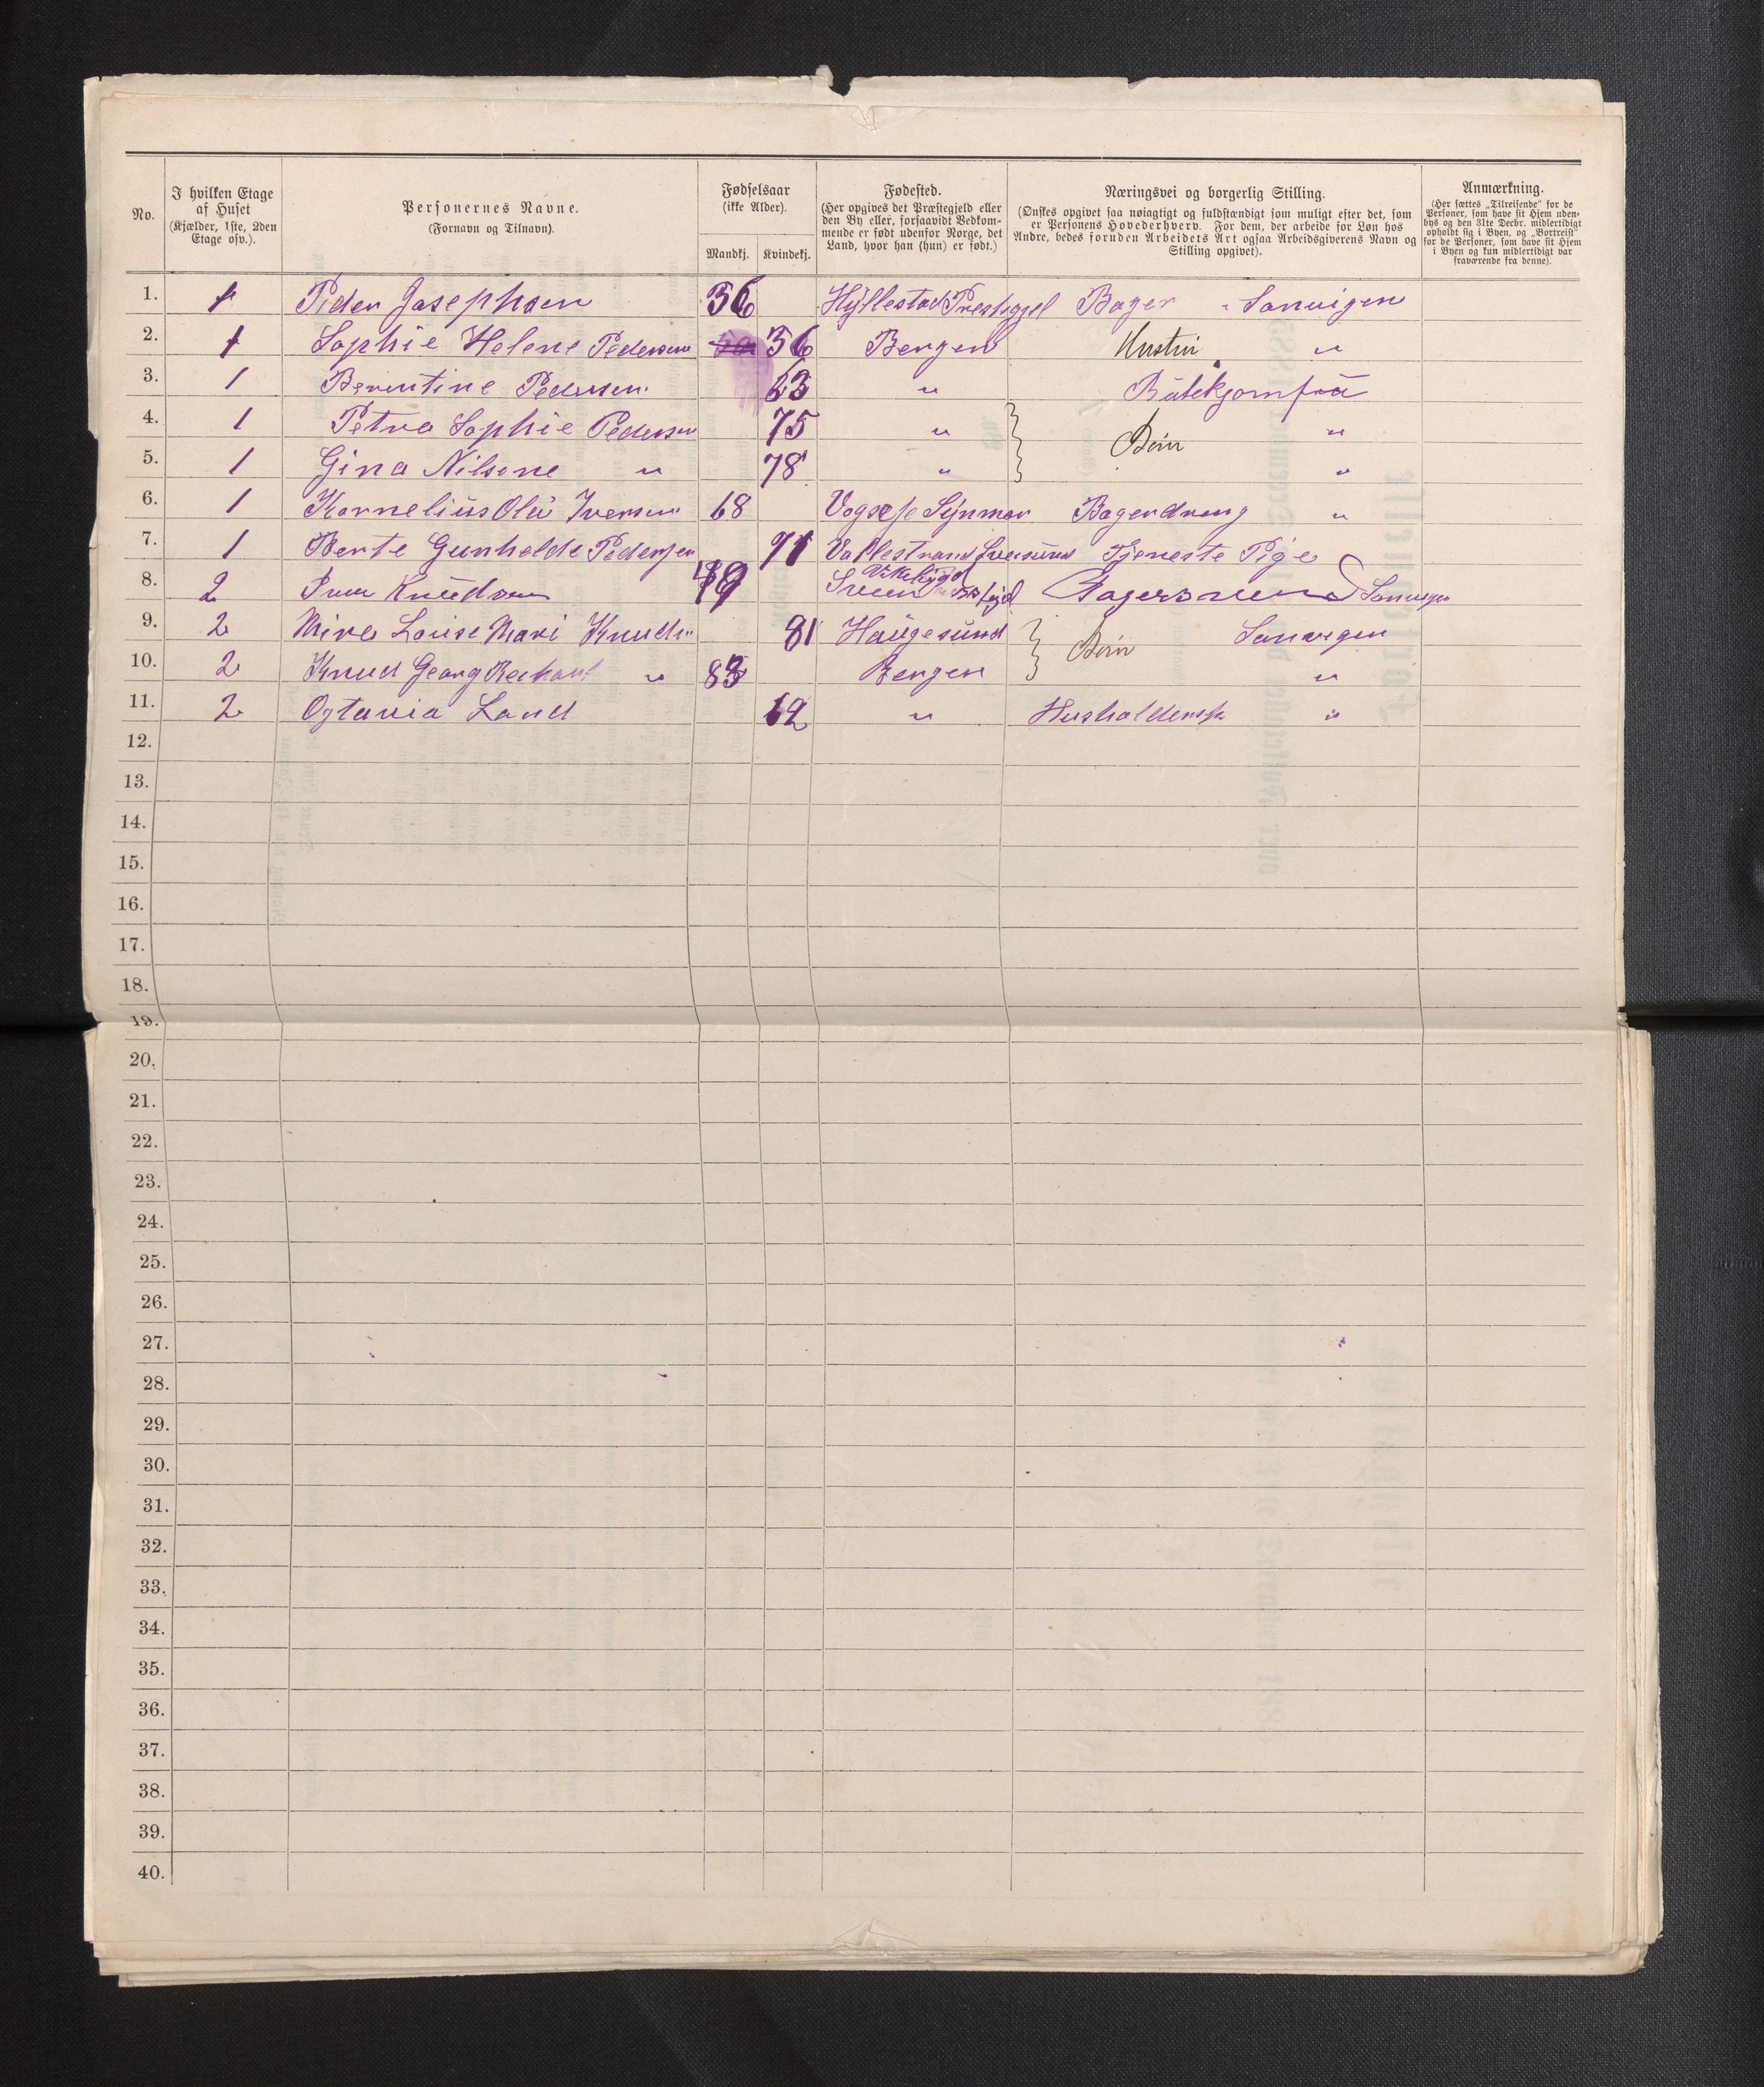 No.
I hvilken Etage af Huset (Kjælder, 1ste, 2den Etage osv.).
Personernes Navne. (Fornavn og Tilnavn).
Fødselsaar (ikke Alder).
Mandkj. Kvindekj.
Fødested. (Her opgives det Præstegjeld eller den By eller, forsaavidt Vedkommende er født udenfor Norge, det Land, hvor han (hun) er født.)
Næringsvei og borgerlig Stilling. (Ønskes opgivet saa nøiagtigt og fuldstændigt som muligt efter det, som er Personens Hovederhverv. For dem, der arbeide for Løn hos Andre, bedes foruden Arbeidets Art ogsaa Arbeidsgiverens Navn og Stilling opgivet).
Anmærkning. (Her sættes „Tilreisende" for de Personer, som have sit Hjem udenbys og den 31te Decbr. midlertidigt opholdt sig i Byen, og „Bortreist" for de Personer, som have sit Hjem i Byen og kun midlertidigt var fraværende fra denne).
1. 1 Peder Josephsen 36 Hyllestad Prestegjel Bager Sanvigen
2. 1 Sophie Helene Pedersen 36 Bergen Hustru "
3. 1 Berentine Pedersen 63 "
4. 1 Petra Sophie Pedersen 75 " Børn "
5. 1 Gina Nilsene " 78 " "
6. 1 Kornelius Olai Iversen 68 Bagerdreng "
7. 1 Berte Gunhelde Pedersen 71 Tjeneste Pige
8. 2 Iver Knudsen 49 Sveen Vikebygd Bagersvend Sanvigen
9. 2 Louise Mari Knuds 81 Haugesund Børn Sanvigen
10. 2 Knud Georg " 83 Bergen "
11. 2 Ogtavia Land 62 " Husholderske "
12.
13.
14.
15.
16.
17.
18.
19.
20.
21.
22.
23.
24.
25.
26.
27.
28.
29.
30.
31.
32.
33.
34.
35.
36.
37.
38.
39.
40.